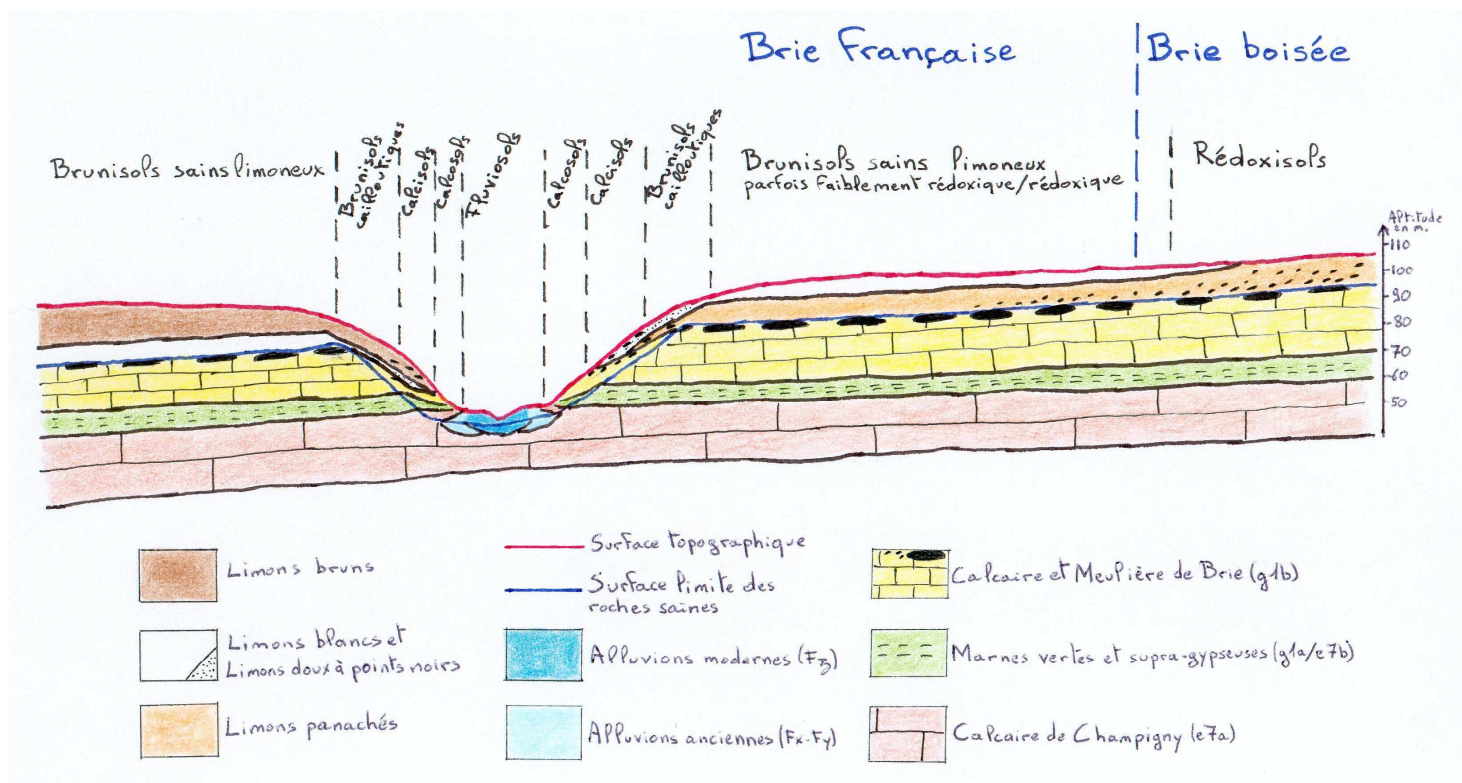 Brie Française
Brie boisée
Brunisols sains limoneux
Brunisols
caillouteux
Calcisols
Calcosols
Fluviosols
Calcosols
Calcisols
Brunisols
Brunisols sains limoneux
parfois faiblement rédoxique/rédoxique
Rédoxisols
Altitude
en m.
110
100
90
80
70
60
50
Limons bruns
Limons blancs et
Limons doux à points noirs
Limons panachés
Surface topographique
Surface limite des
roches saines
Alluvions modernes (Fz)
Alluvions anciennes (Fx-Fy)
Calcaire et Meulière de Brie (g1b)
Marnes vertes et supra-gypseuses (g1a/e7b)
Calcaire de Champigny (e7a)